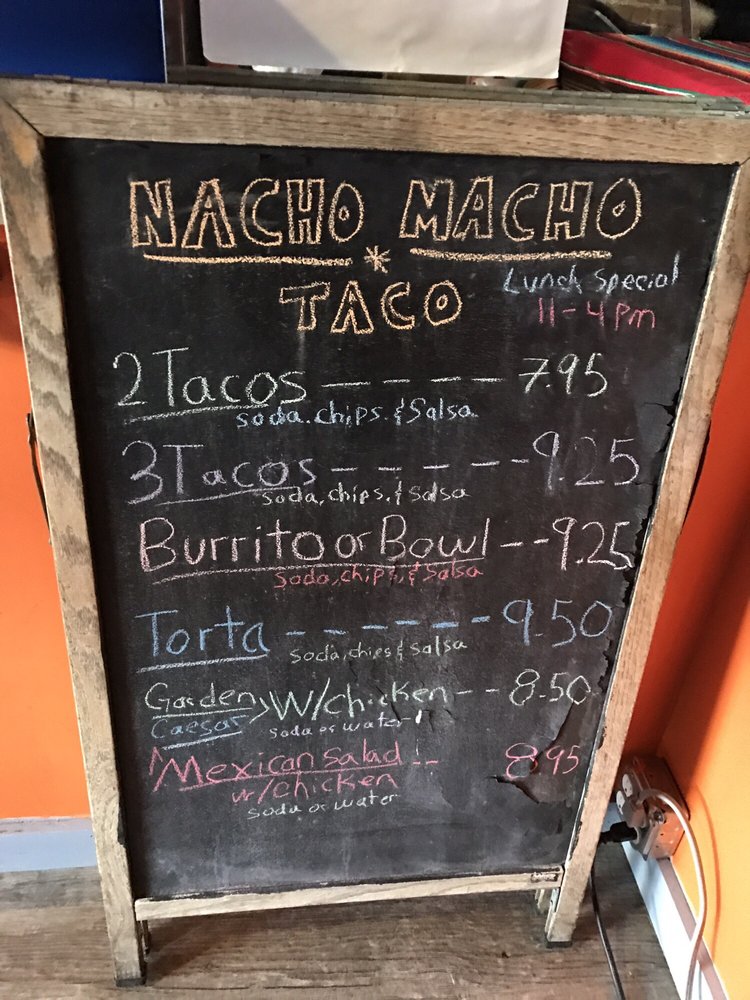 NACHO MACHO
* TACO
Lunch Special
11-4 pm
2 Tacos ----- 7.95
soda, chips, & Salsa
3 Tacos ----- 9.25
soda, chips, & salsa
Burrito or Bowl -- 9.25
soda, chips, & salsa
Torta ------ 9.50
soda, chips & salsa
Garden
Caesar > W/chicken -- 8.50
soda or water
Mexican Salad -- 8.95
w/chicken
soda or water